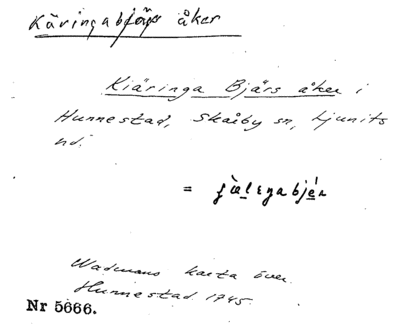 Käringabjärs åker
Kiäringa Bjärs åker i
Hunnestad, Skårby sn, Ljunits
hd.
=
Wadmans karta över
Hunnestad 1745.
Nr 5666.